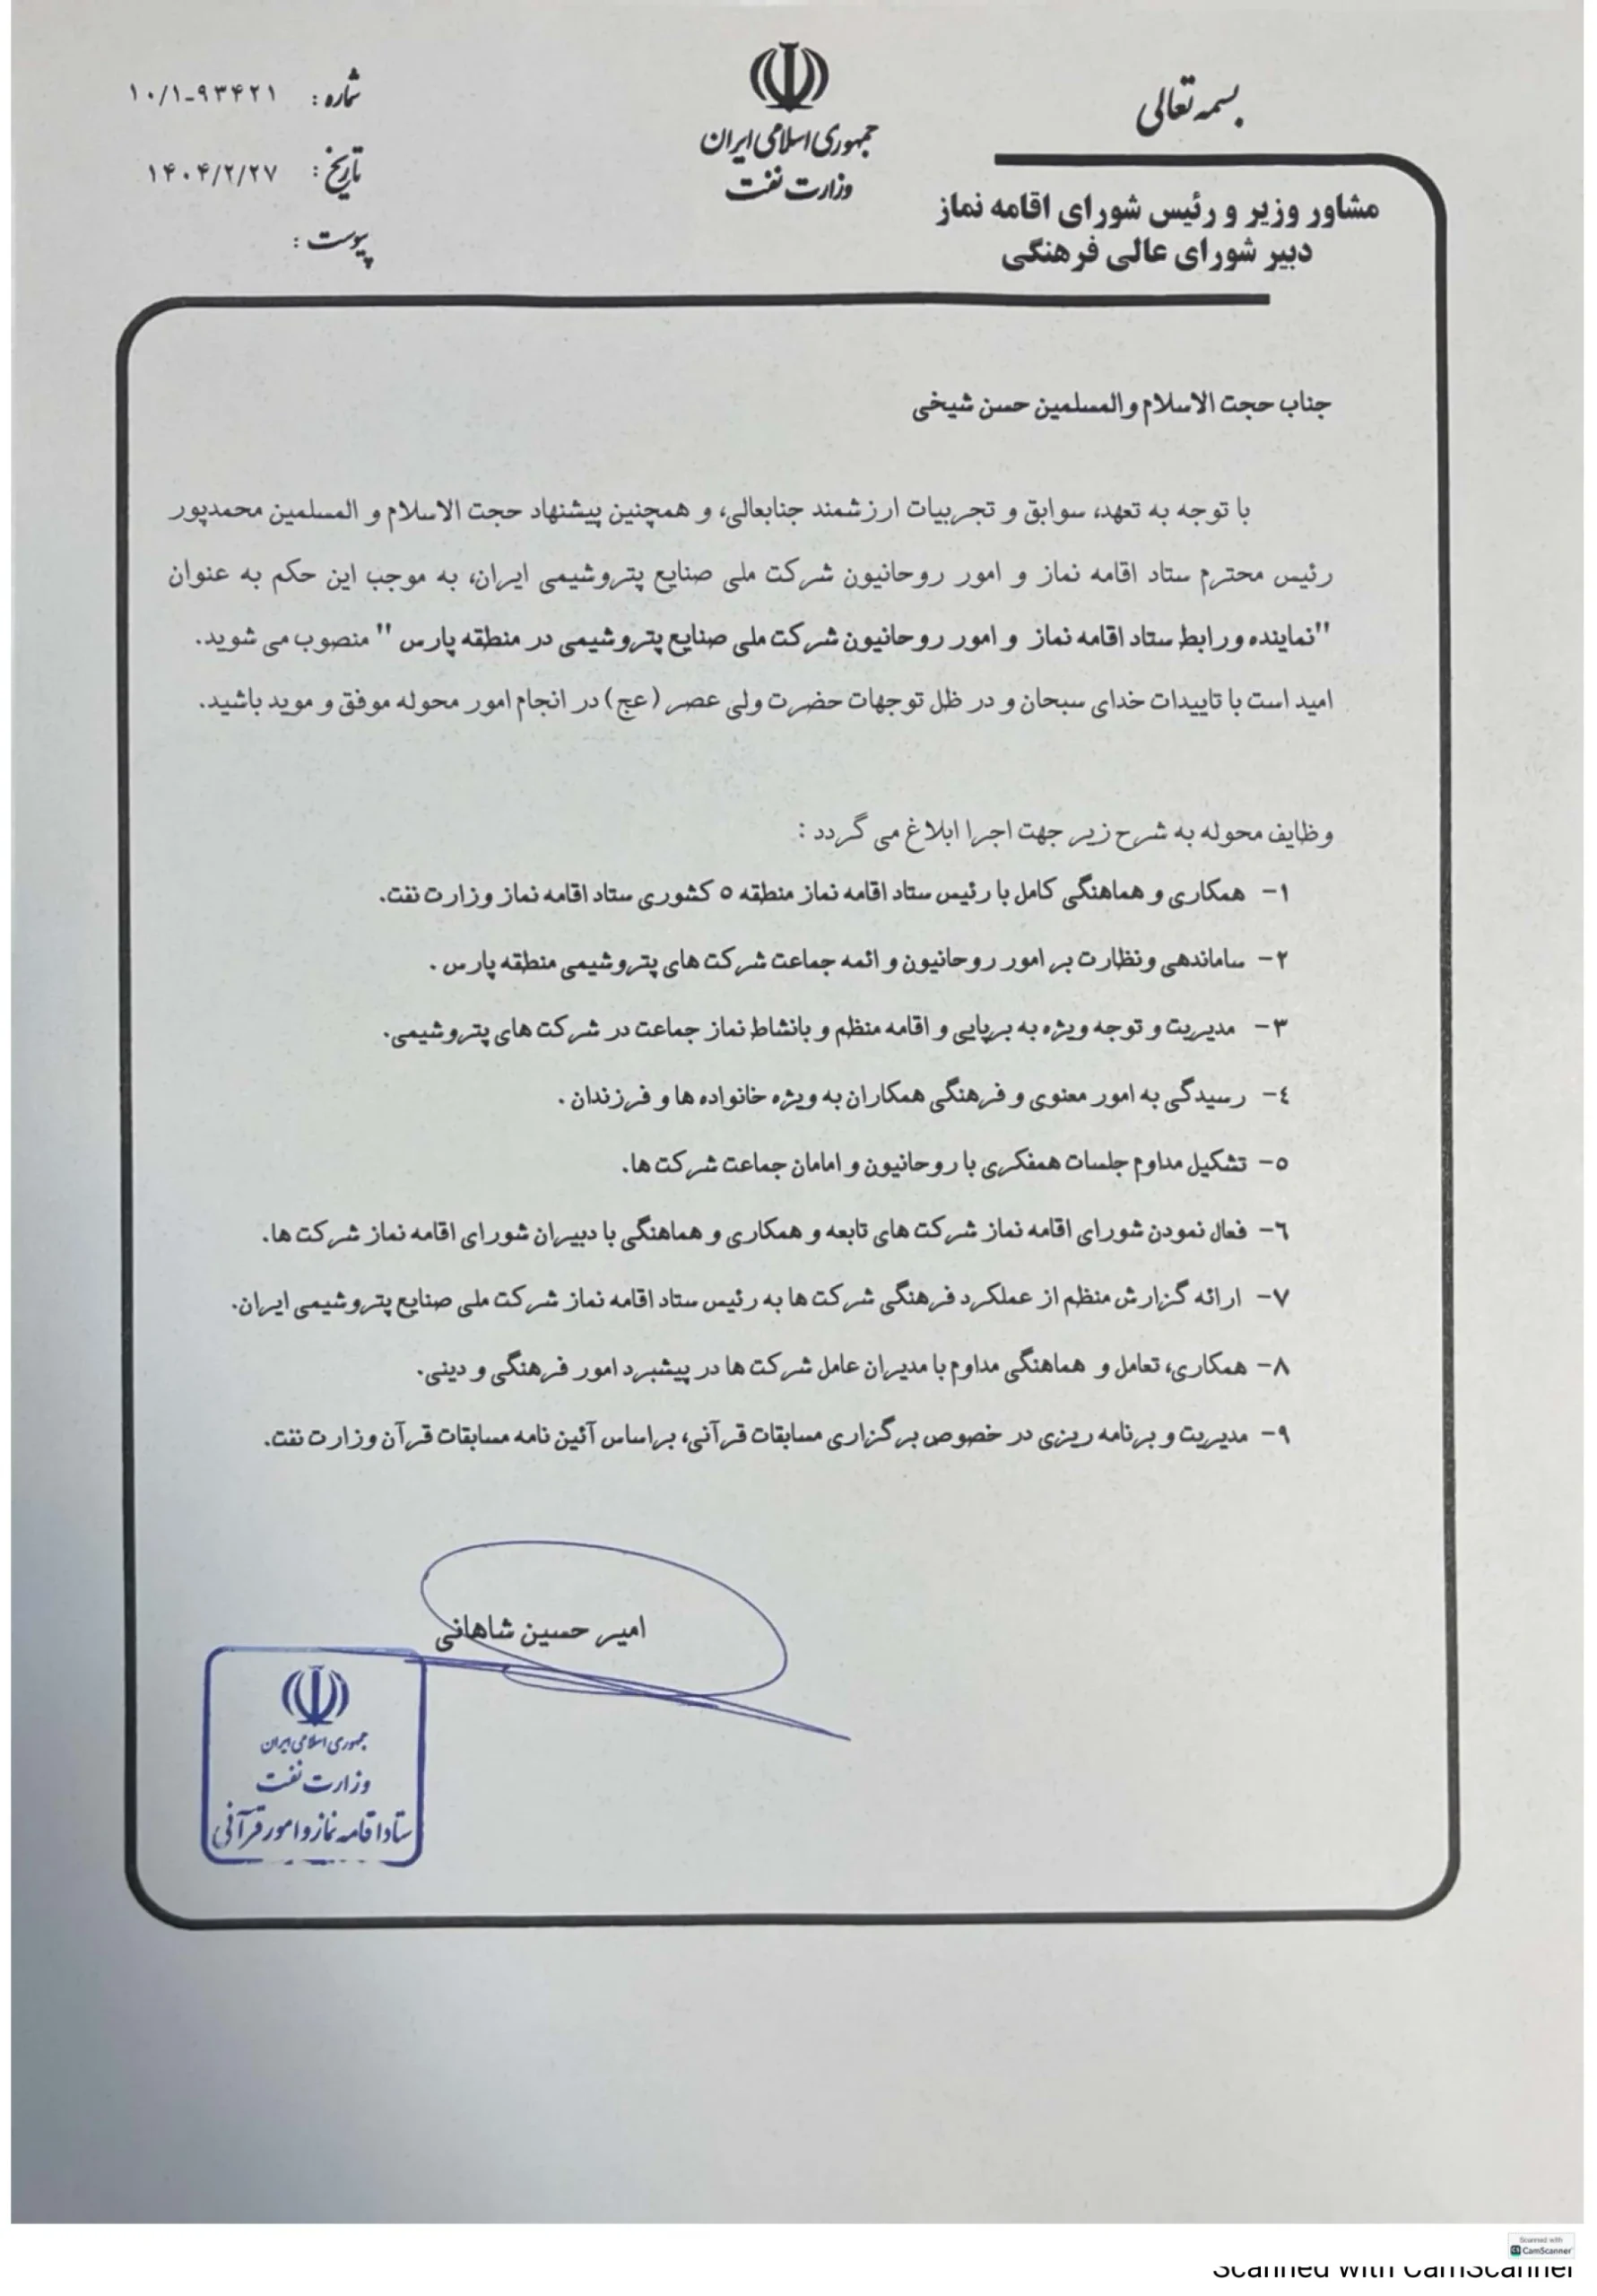 بسمه تعالی
جمهوری اسلامی ایران
وزارت نفت
شماره : ۱۰/۱-۹۳۴۲۱
تاریخ : ۱۴۰۴/۲/۲۷
پیوست :
مشاور وزیر و رئیس شورای اقامه نماز
دبیر شورای عالی فرهنگی
جناب حجت الاسلام والمسلمین حسن شیخی
با توجه به تعهد، سوابق و تجربیات ارزشمند جنابعالی، و همچنین پیشنهاد حجت الاسلام و المسلمین محمدپور
رئیس محترم ستاد اقامه نماز و امور روحانیون شرکت ملی صنایع پتروشیمی ایران، به موجب این حکم به عنوان
"نماینده ورابط ستاد اقامه نماز و امور روحانیون شرکت ملی صنایع پتروشیمی در منطقه پارس " منصوب می شوید.
امید است با تاییدات خدای سبحان و در ظل توجهات حضرت ولی عصر (عج) در انجام امور محوله موفق و موید باشید.
وظایف محوله به شرح زیر جهت اجرا ابلاغ می گردد :
۱- همکاری و هماهنگی کامل با رئیس ستاد اقامه نماز منطقه ۵ کشوری ستاد اقامه نماز وزارت نفت.
۲- ساماندهی ونظارت بر امور روحانیون و ائمه جماعت شرکت های پتروشیمی منطقه پارس .
۳- مدیریت و توجه ویژه به برپایی و اقامه منظم و بانشاط نماز جماعت در شرکت های پتروشیمی.
٤- رسیدگی به امور معنوی و فرهنگی همکاران به ویژه خانواده ها و فرزندان .
۵- تشکیل مداوم جلسات همفکری با روحانیون و امامان جماعت شرکت ها.
٦- فعال نمودن شورای اقامه نماز شرکت های تابعه و همکاری و هماهنگی با دبیران شورای اقامه نماز شرکت ها.
۷- ارائه گزارش منظم از عملکرد فرهنگی شرکت ها به رئیس ستاد اقامه نماز شرکت ملی صنایع پتروشیمی ایران.
۸- همکاری، تعامل و هماهنگی مداوم با مدیران عامل شرکت ها در پیشبرد امور فرهنگی و دینی.
۹- مدیریت و برنامه ریزی در خصوص برگزاری مسابقات قرآنی، براساس آئین نامه مسابقات قرآن وزارت نفت.
امیر حسین شاهانی
جمهوری اسلامی ایران
وزارت نفت
ستاد اقامه نماز و امور قرآنی
Scanned with
CS CamScanner
Scanned with CamScanner